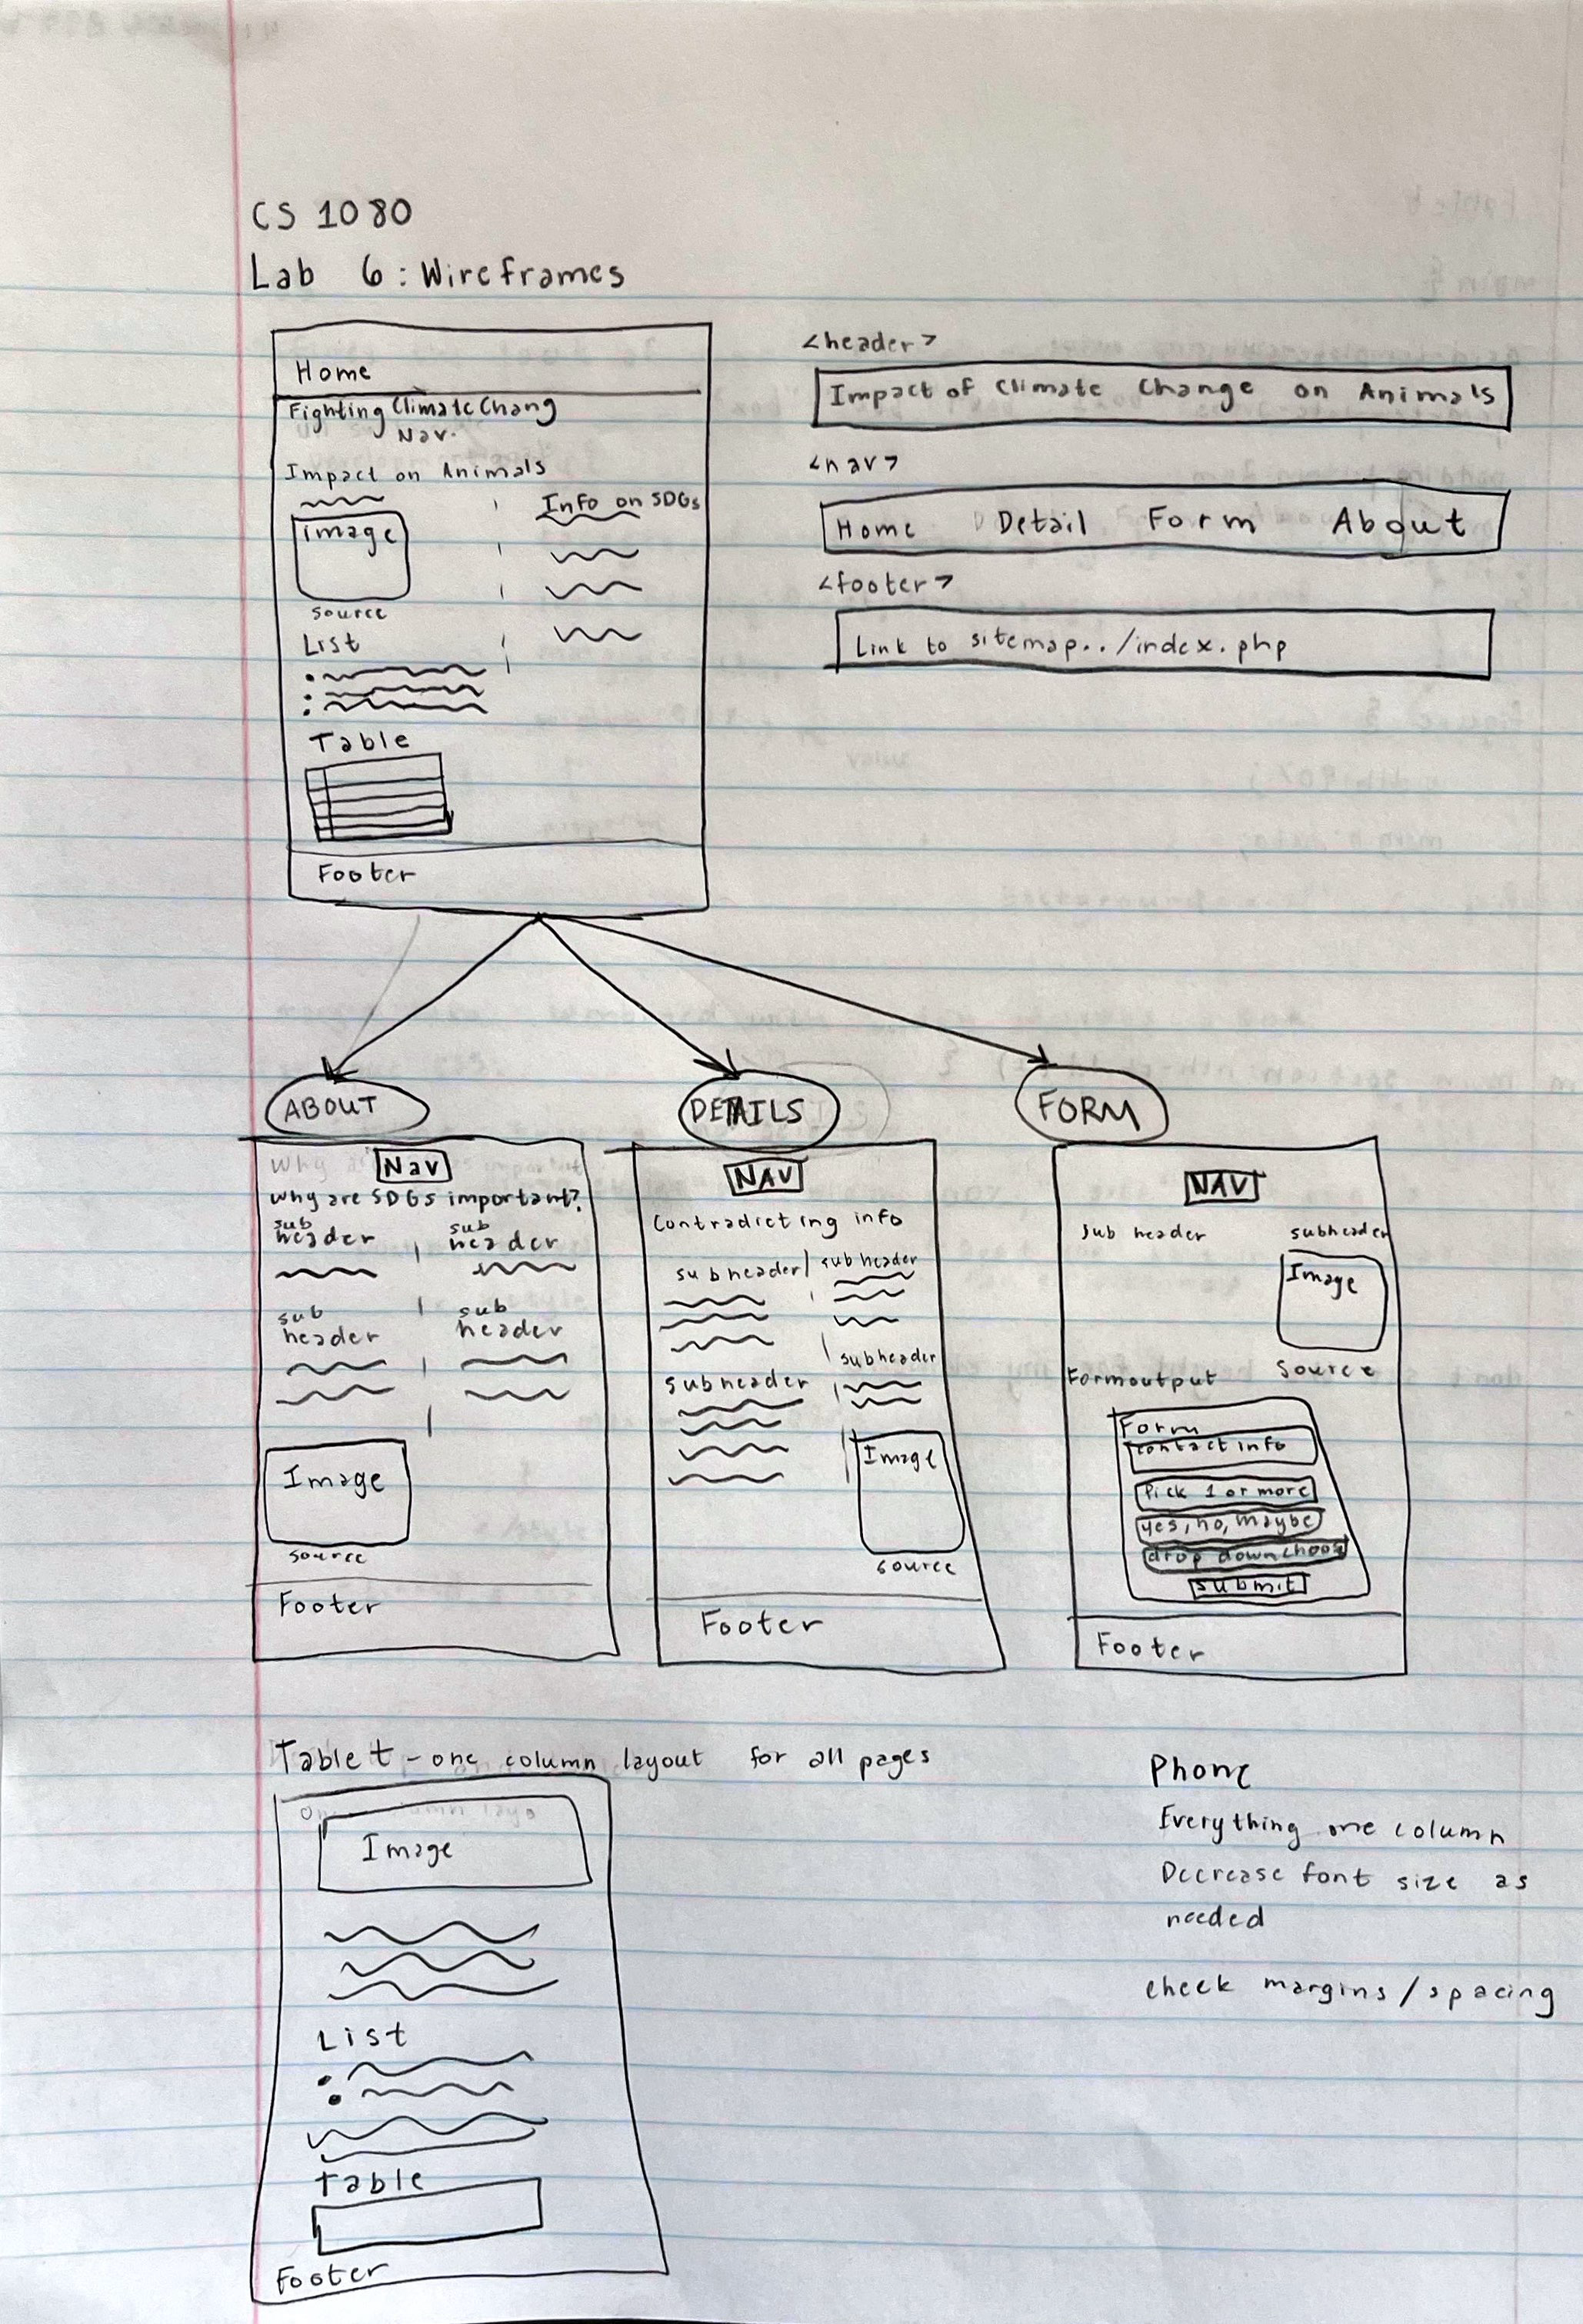 CS 1080
Lab 6: Wireframes
Home
Fighting Climate Chang
Nav.
Impact on Animals
Info on SDGs
Image
source
List
Table
Footer
<header>
Impact of Climate Change on Animals
<nav>
Home Detail Form About
<footer>
Link to sitemap../index.php
ABOUT
Nav
Why are SDGs important?
sub header
sub header
sub header
sub header
Image
source
Footer
DETAILS
NAV
Contradicting info
subheader
subheader
subheader
subheader
Image
source
Footer
FORM
NAV
Sub header
subheader
Image
Source
Formoutput
Form
contact info
Pick 1 or more
yes, no, maybe
drop down choose
submit
Footer
Tablet - one column layout for all pages
Image
List
Table
Footer
Phone
Everything one column
Decrease font size as
needed
check margins/spacing